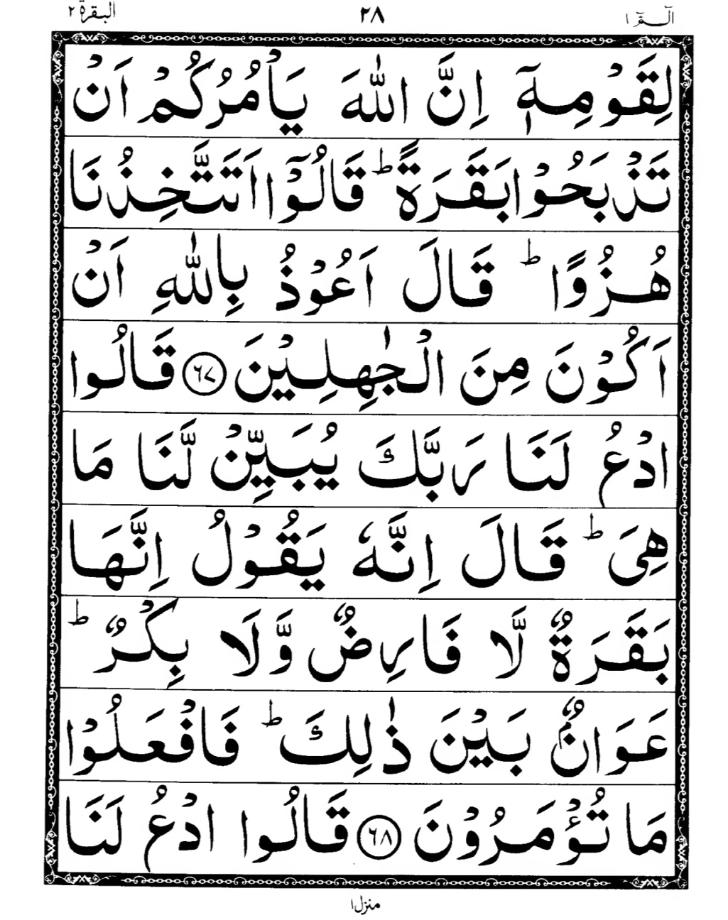 الٓـمّٓ ١ ٢٨ البقرة ٢
لِقَوْمِهٖۤ اِنَّ اللّٰهَ یَاْمُرُكُمْ اَنْ
تَذْبَحُوْا بَقَرَةًؕ قَالُوْۤا اَتَتَّخِذُنَا
هُزُوًاؕ قَالَ اَعُوْذُ بِاللّٰهِ اَنْ
اَكُوْنَ مِنَ الْجٰهِلِیْنَ ﴿٦٧﴾ قَالُوا
ادْعُ لَنَا رَبَّكَ یُبَیِّنْ لَّنَا مَا
هِیَؕ قَالَ اِنَّهٗ یَقُوْلُ اِنَّهَا
بَقَرَةٌ لَّا فَارِضٌ وَّلَا بِكْرٌؕ
عَوَانٌۢ بَیْنَ ذٰلِكَؕ فَافْعَلُوْا
مَا تُؤْمَرُوْنَ ﴿٦٨﴾ قَالُوا ادْعُ لَنَا
منزل ١